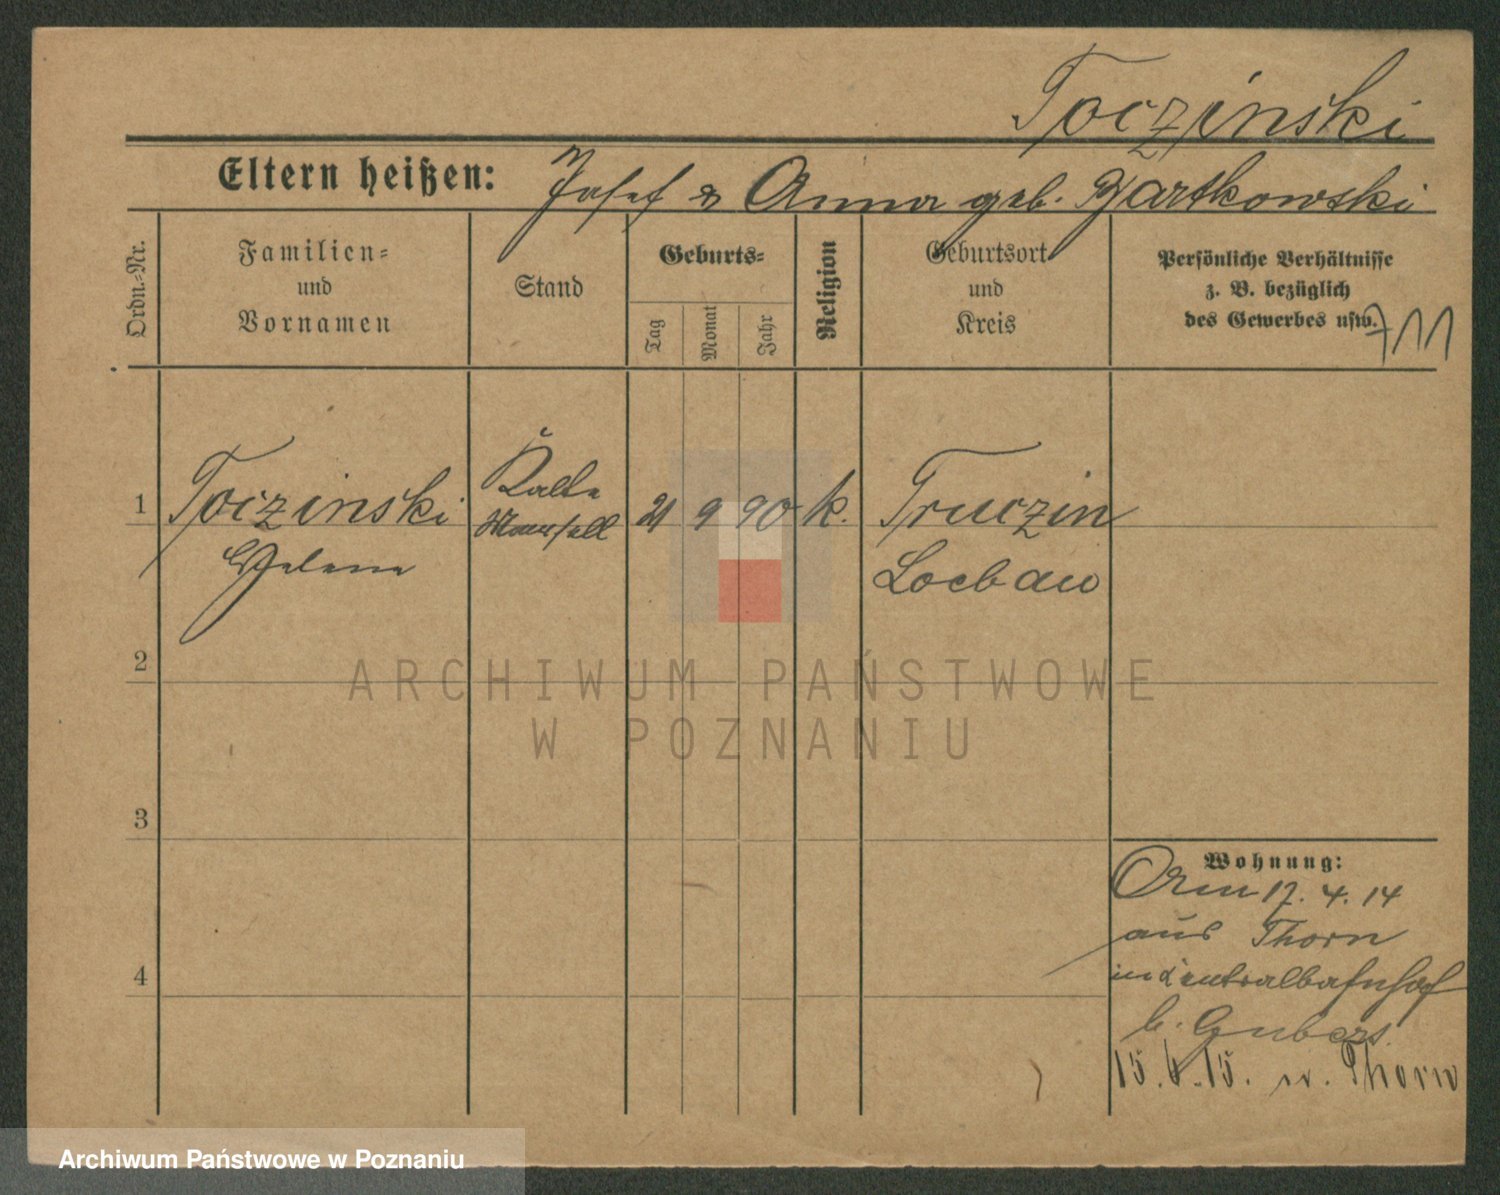 Toczinski
Eltern heißen: Josef & Anna geb. Bartkowski
Ordn.-Nr.
Familien-
und
Vornamen
Stand
Geburts-
Tag
Monat
Jahr
Religion
Geburtsort
und
Kreis
Persönliche Verhältnisse
z. B. bezüglich
des Gewerbes usw.
711
1 Toczinski Kalte 21 9 90 k. Truczin
Helene Mamsell Loebau
2
3
4
Wohnung:
17. 4. 14
aus Thorn
in Zentralbahnhof
b.
15. 6. 15. n. Thorn
ARCHIWUM PAŃSTWOWE
W POZNANIU
Archiwum Państwowe w Poznaniu